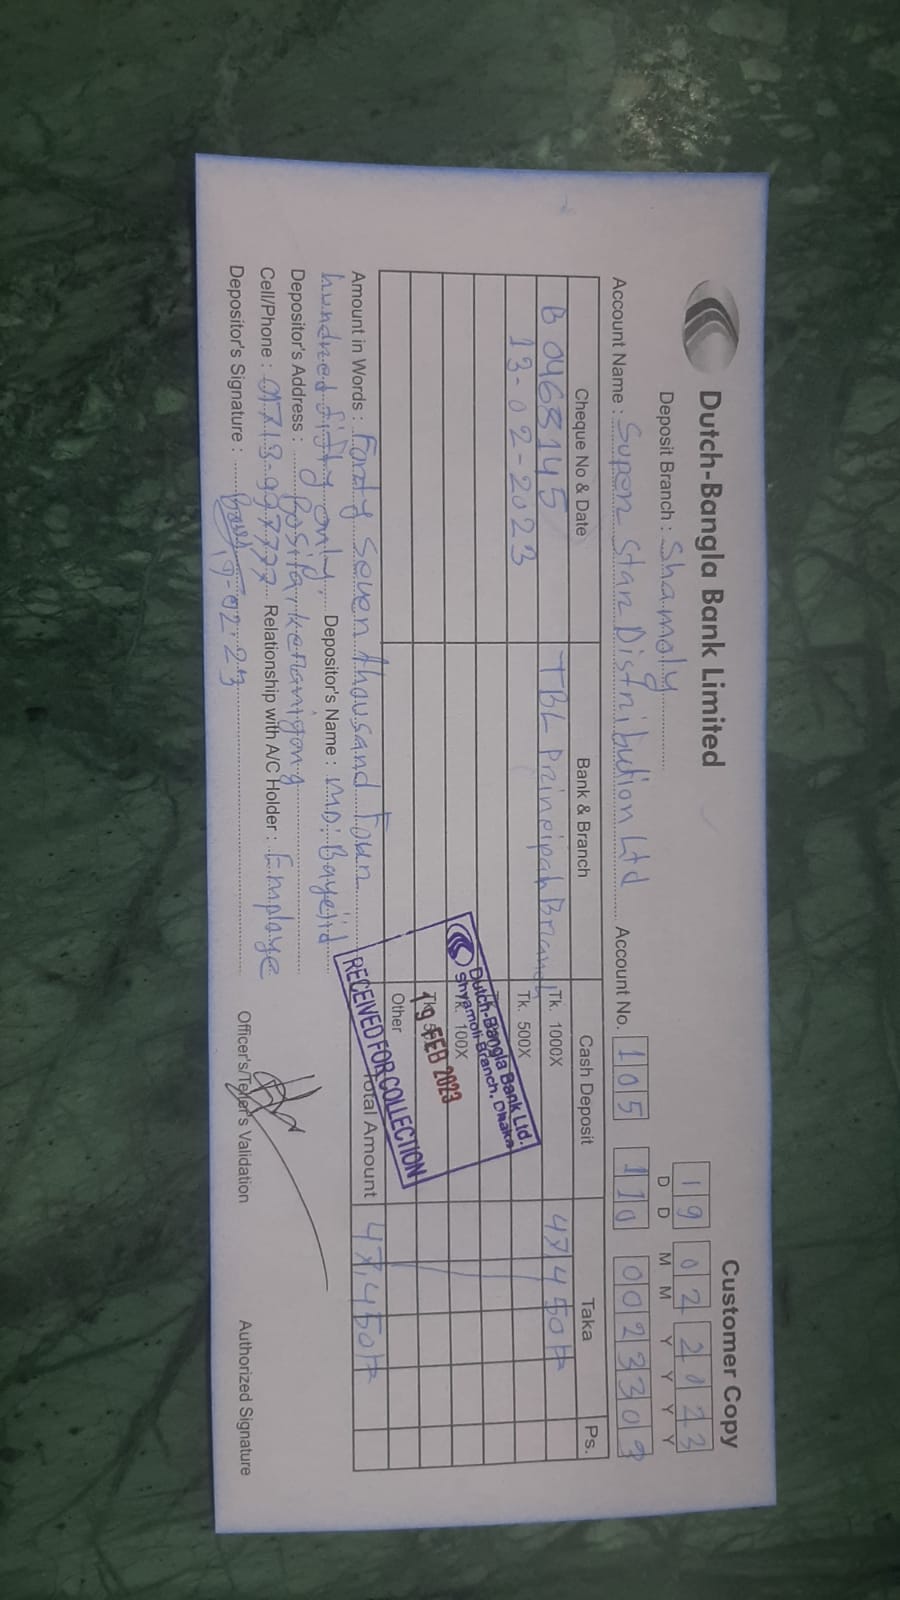 Dutch-Bangla Bank Limited
Customer Copy
Deposit Branch : Shamoly
19 02 2023
D D M M Y Y Y Y
Account Name : Super Star Distribution Ltd Account No. 105 110 0023309
Cheque No & Date Bank & Branch Cash Deposit Taka Ps.
B 0468145 TBL Principal Branch Tk. 1000X 47450/=
13-02-2023 Tk. 500X
100X
Other
Dutch-Bangla Bank Ltd.
Shyamoli Branch, Dhaka
19 FEB 2023
RECEIVED FOR COLLECTION
Amount in Words : Forty Seven thousand Four Total Amount 47,450/=
hundred fifty only. Depositor's Name : MD: Bayejid
Depositor's Address :
Cell/Phone : Relationship with A/C Holder : Employe
Depositor's Signature : 19-02-23
Officer's/Teller's Validation Authorized Signature